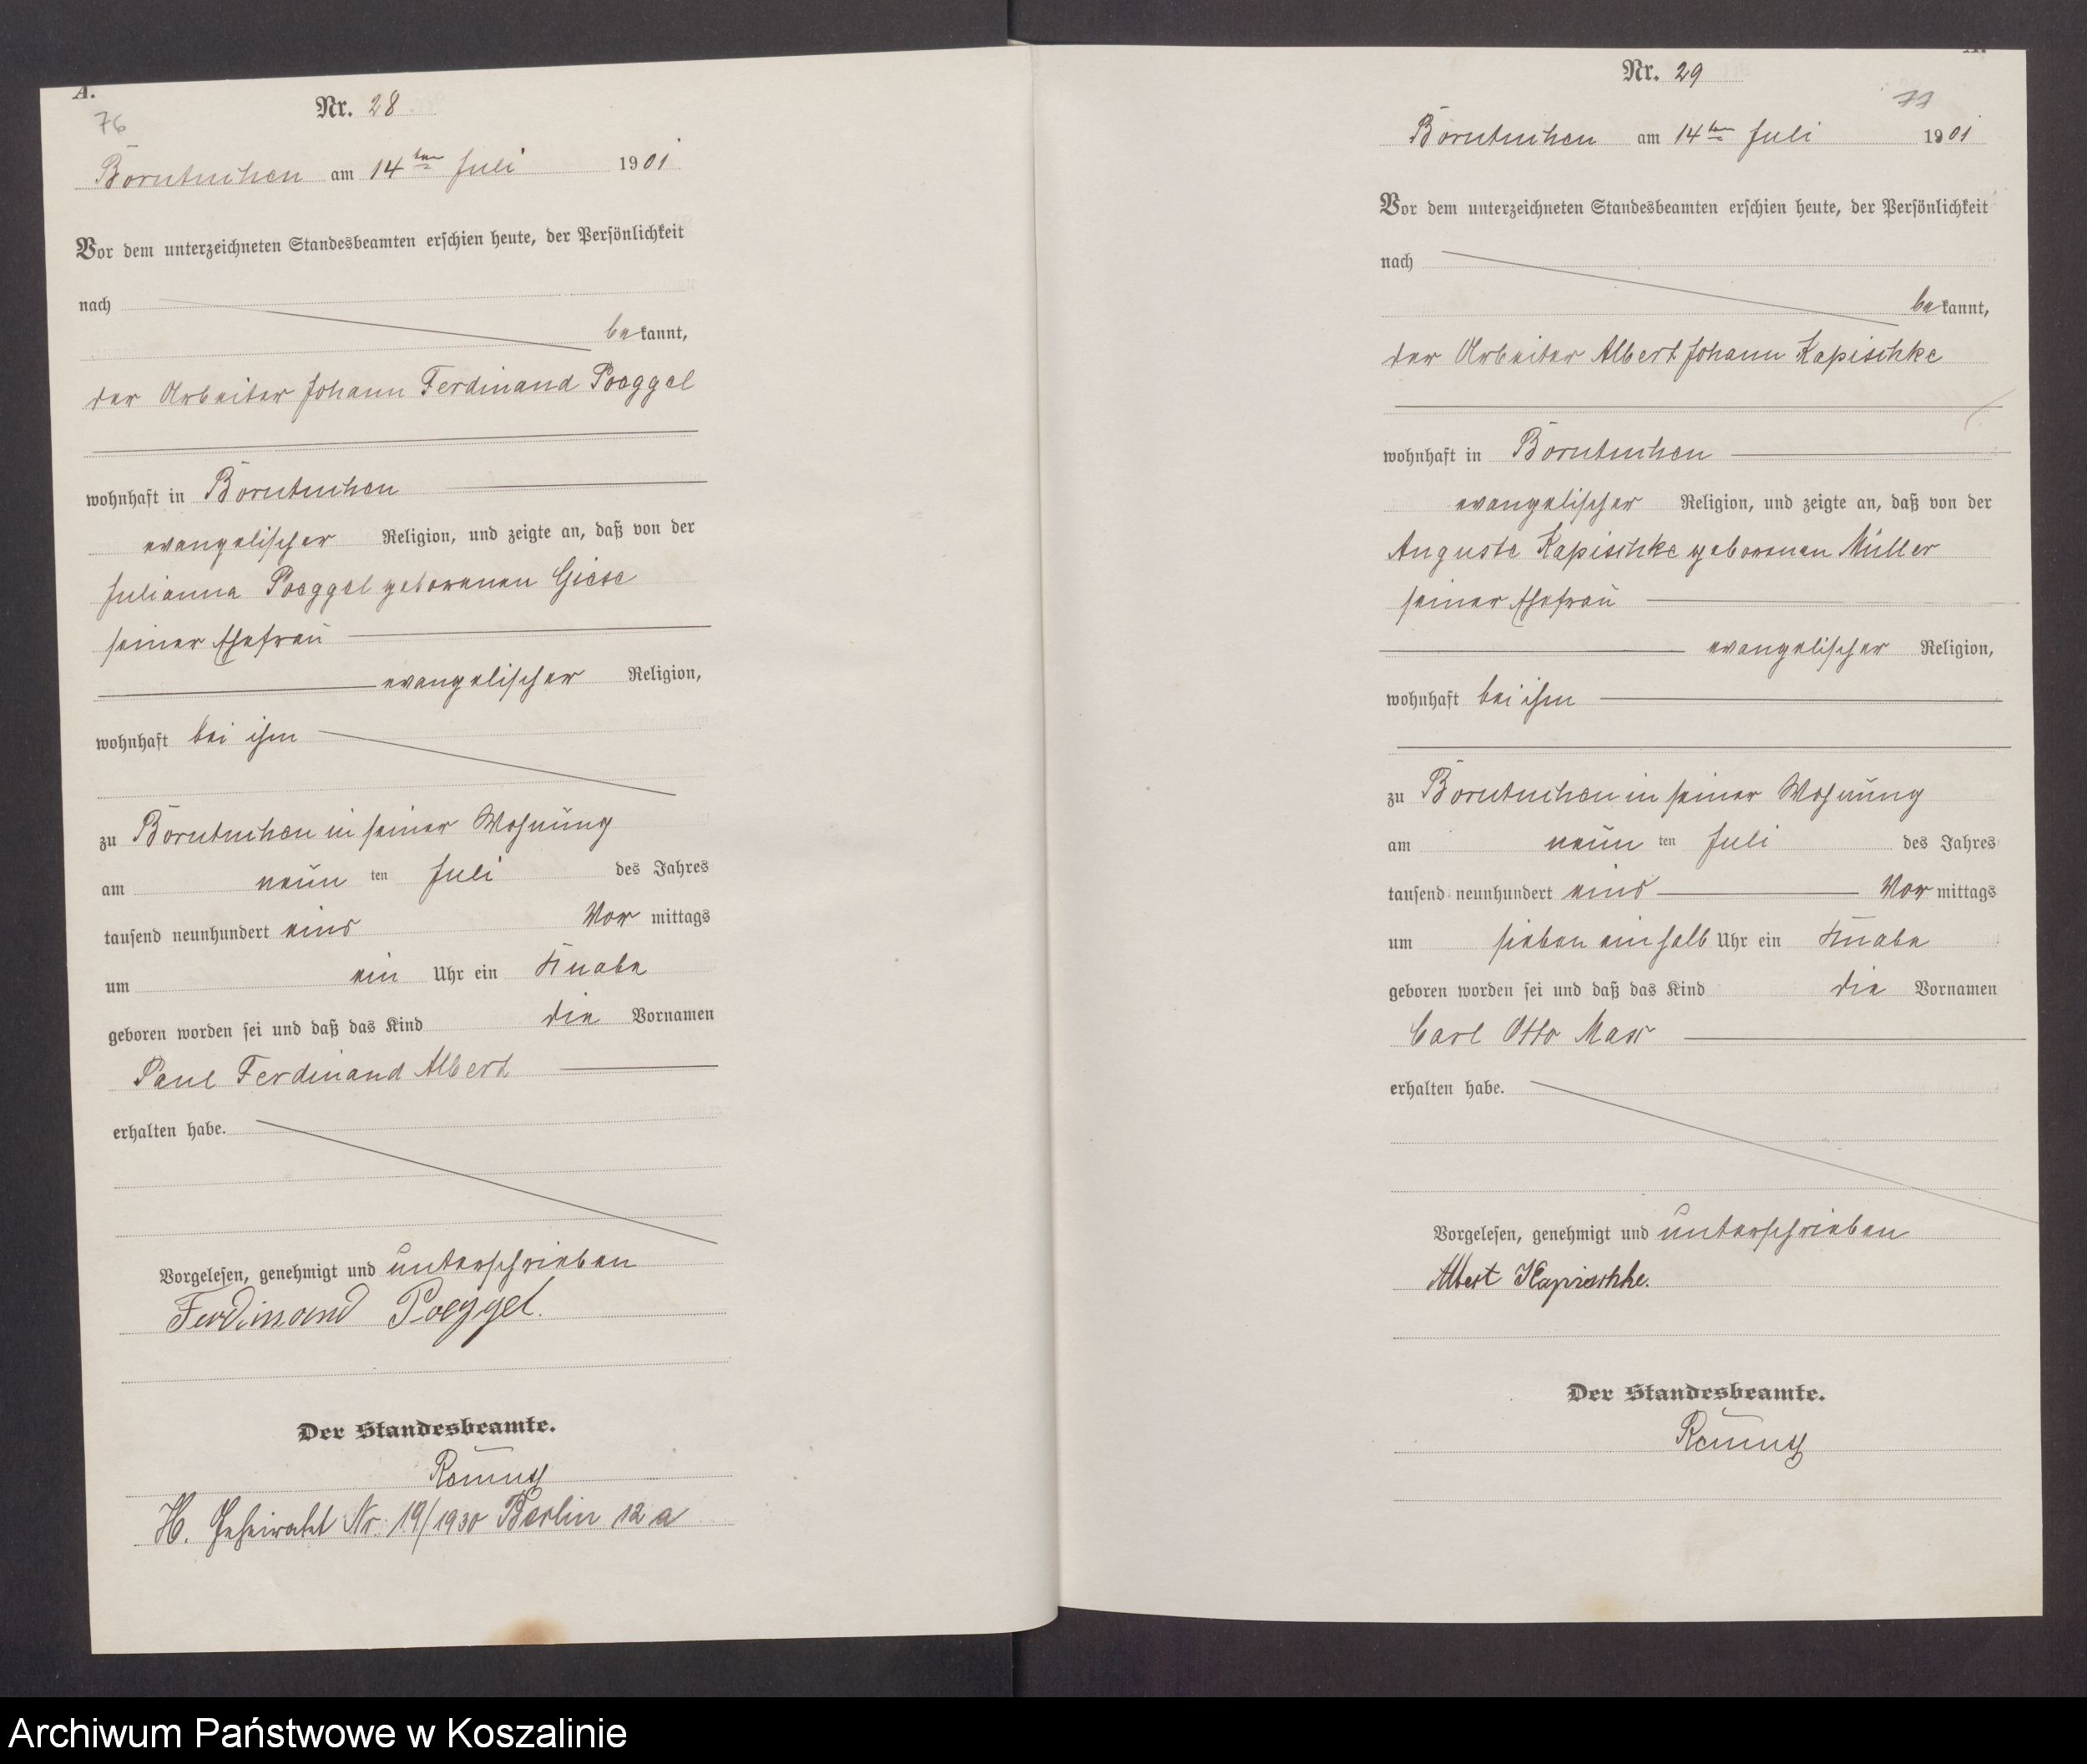 A.
76
Nr. 28
Borntuchen am 14ten Juli 1901
Vor dem unterzeichneten Standesbeamten erschien heute, der Persönlichkeit
nach
bekannt,
der Arbeiter Johann Ferdinand Poeggel
wohnhaft in Borntuchen
evangelischer Religion, und zeigte an, daß von der
Julianna Poeggel geborenen Giese
seiner Ehefrau
evangelischer Religion,
wohnhaft bei ihm
zu Borntuchen in seiner Wohnung
am neun ten Juli des Jahres
tausend neunhundert eins Vor mittags
um ein Uhr ein Knabe
geboren worden sei und daß das Kind die Vornamen
Paul Ferdinand Albert
erhalten habe.
Vorgelesen, genehmigt und unterschrieben
Ferdinand Poeggel.
Der Standesbeamte.
H. Geheiratet Nr. 19/1930 Berlin 12a
A.
Nr. 29
77
Borntuchen am 14ten Juli 1901
Vor dem unterzeichneten Standesbeamten erschien heute, der Persönlichkeit
nach
bekannt,
der Arbeiter Albert Johann Kapischke
wohnhaft in Borntuchen
evangelischer Religion, und zeigte an, daß von der
Auguste Kapischke geborenen Müller
seiner Ehefrau
evangelischer Religion,
wohnhaft bei ihm
zu Borntuchen in seiner Wohnung
am neun ten Juli des Jahres
tausend neunhundert eins Vor mittags
um sieben ein halb Uhr ein Knabe
geboren worden sei und daß das Kind die Vornamen
Carl Otto Max
erhalten habe.
Vorgelesen, genehmigt und unterschrieben
Albert Kapischke.
Der Standesbeamte.
Archiwum Państwowe w Koszalinie